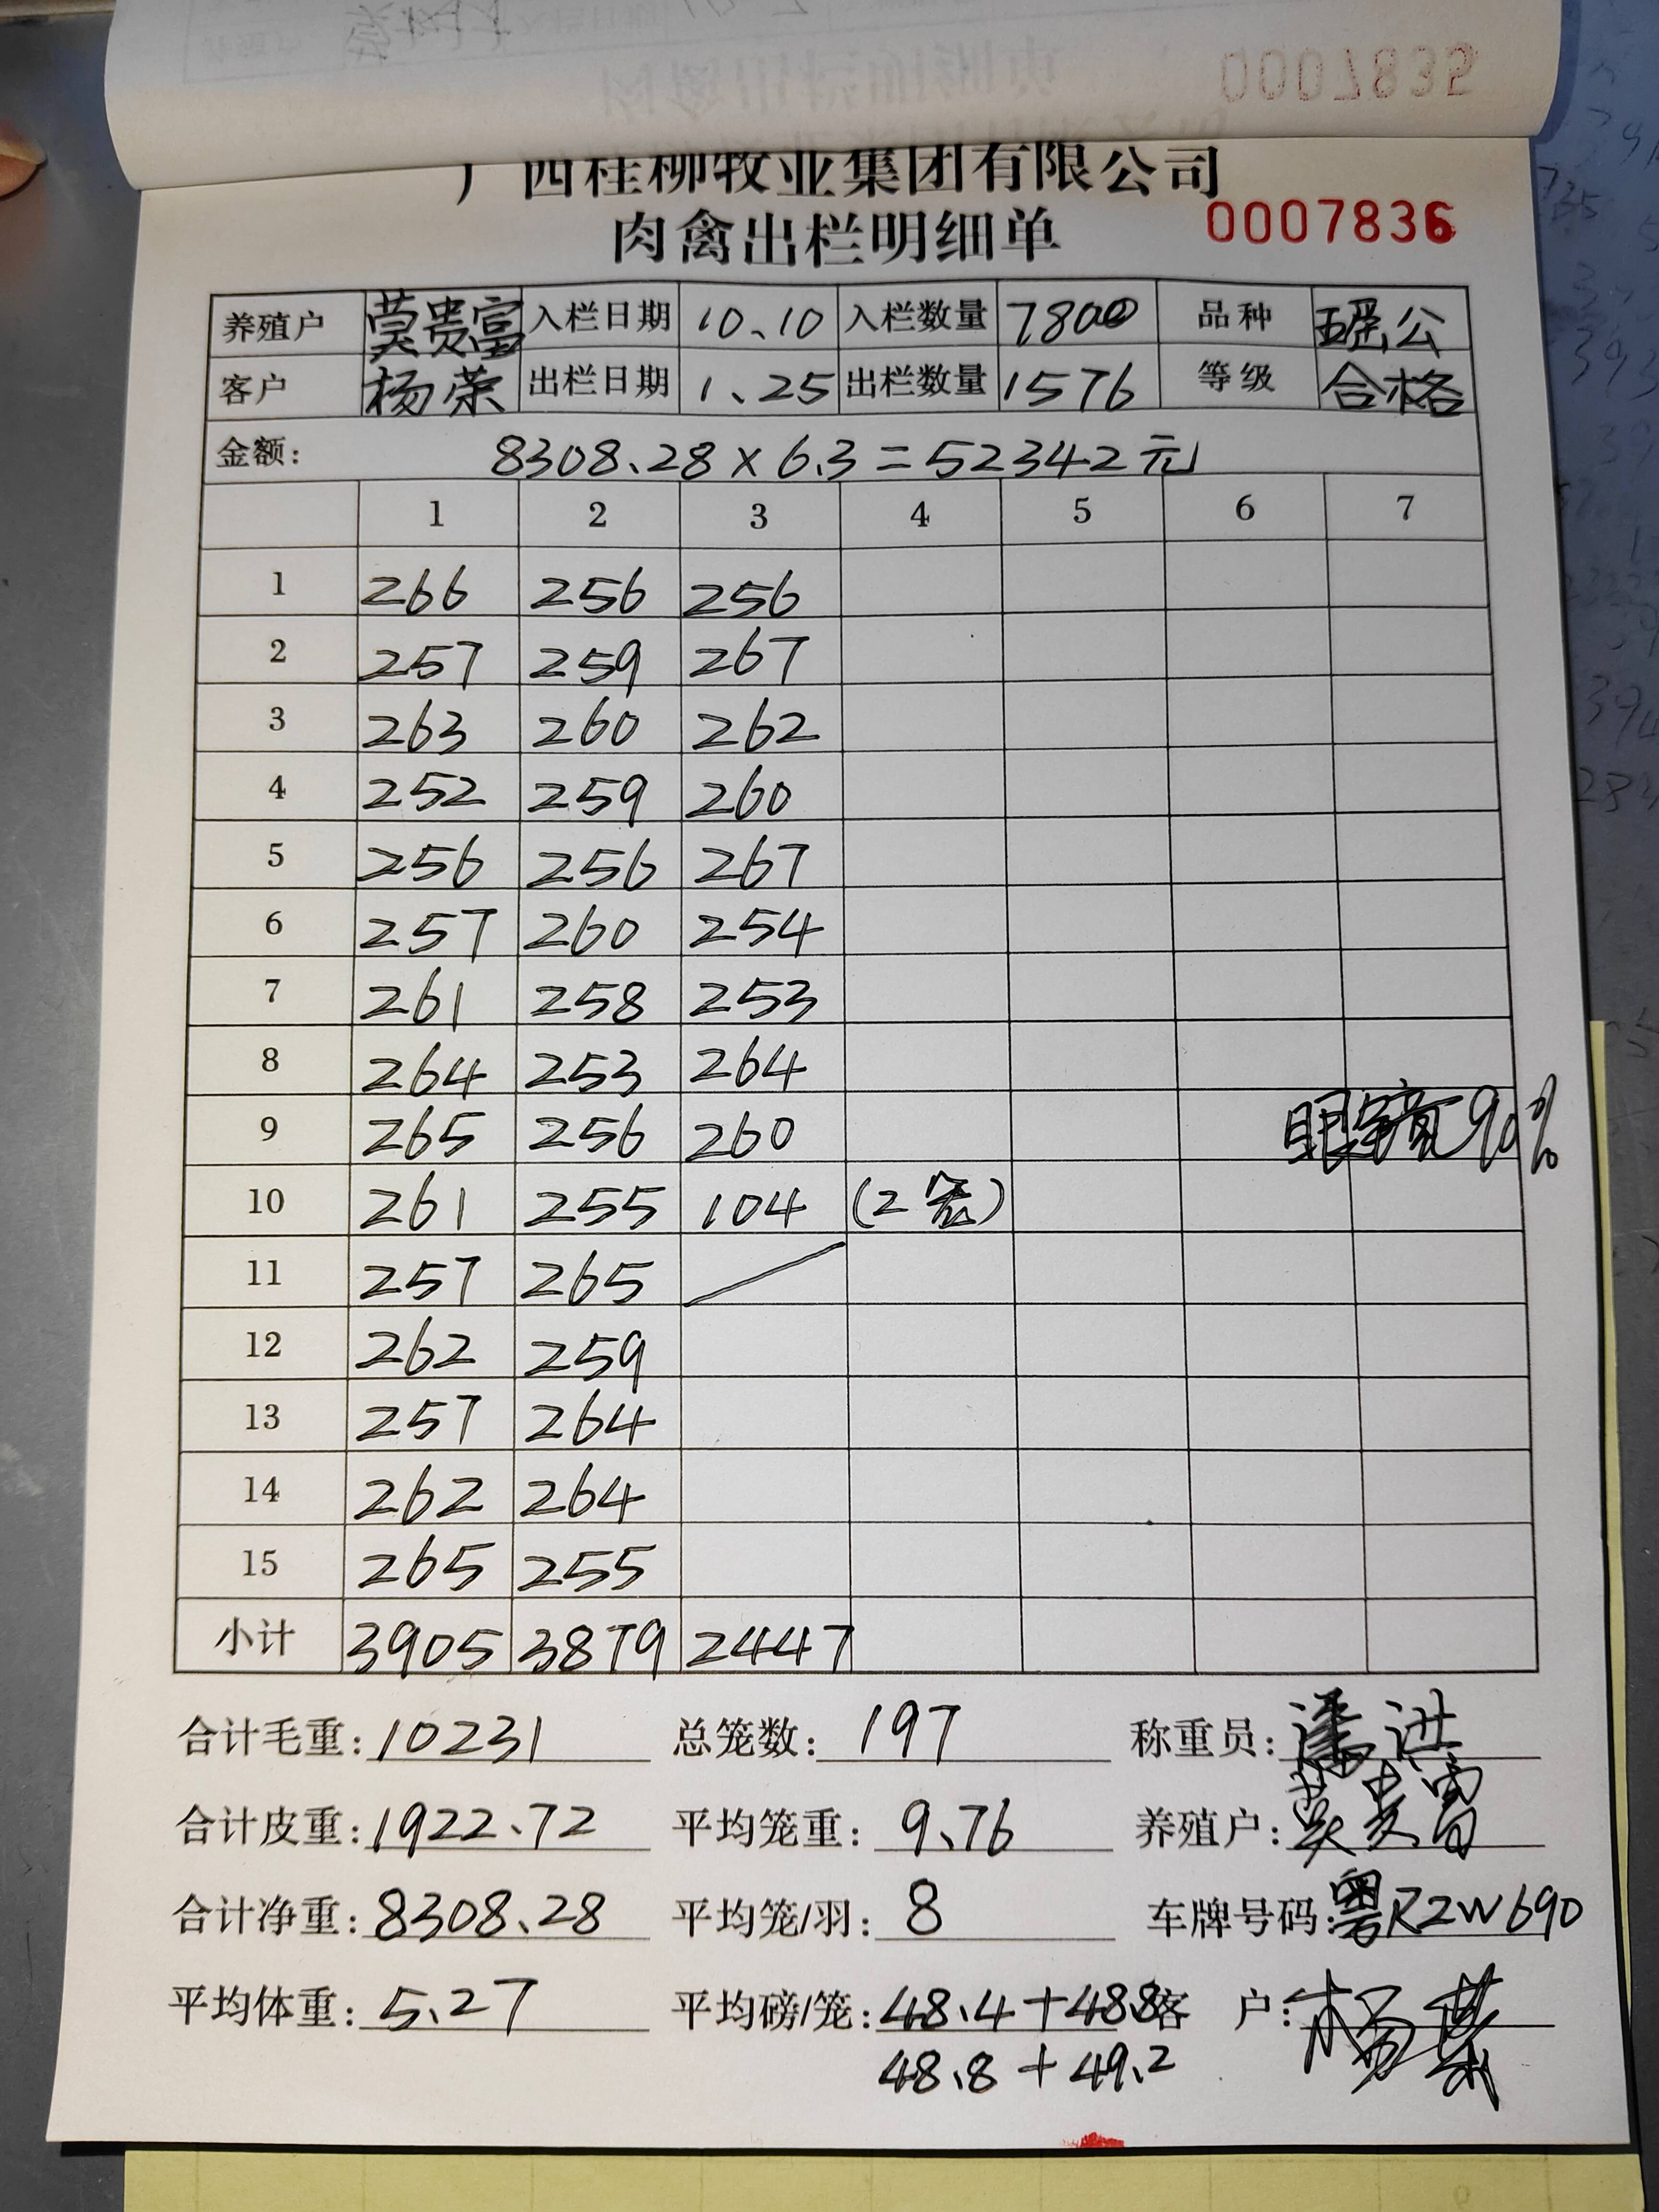 0007835
广西桂柳牧业集团有限公司
肉禽出栏明细单 0007836
养殖户 莫贵富 入栏日期 10、10 入栏数量 7800 品种 瑶公
客户 杨荣 出栏日期 1、25 出栏数量 1576 等级 合格
金额: 8308.28×6.3=52342元
1 2 3 4 5 6 7
1 266 256 256
2 257 259 267
3 263 260 262
4 252 259 260
5 256 256 267
6 257 260 254
7 261 258 253
8 264 253 264
9 265 256 260 眼镜90%
10 261 255 104 (2笼)
11 257 265
12 262 259
13 257 264
14 262 264
15 265 255
小计 3905 3879 2447
合计毛重: 10231 总笼数: 197 称重员: 潘进
合计皮重: 1922.72 平均笼重: 9.76 养殖户: 莫贵富
合计净重: 8308.28 平均笼/羽: 8 车牌号码: 粤R2W690
平均体重: 5.27 平均磅/笼: 48.4+48.8 客户: 杨荣
48.8+49.2